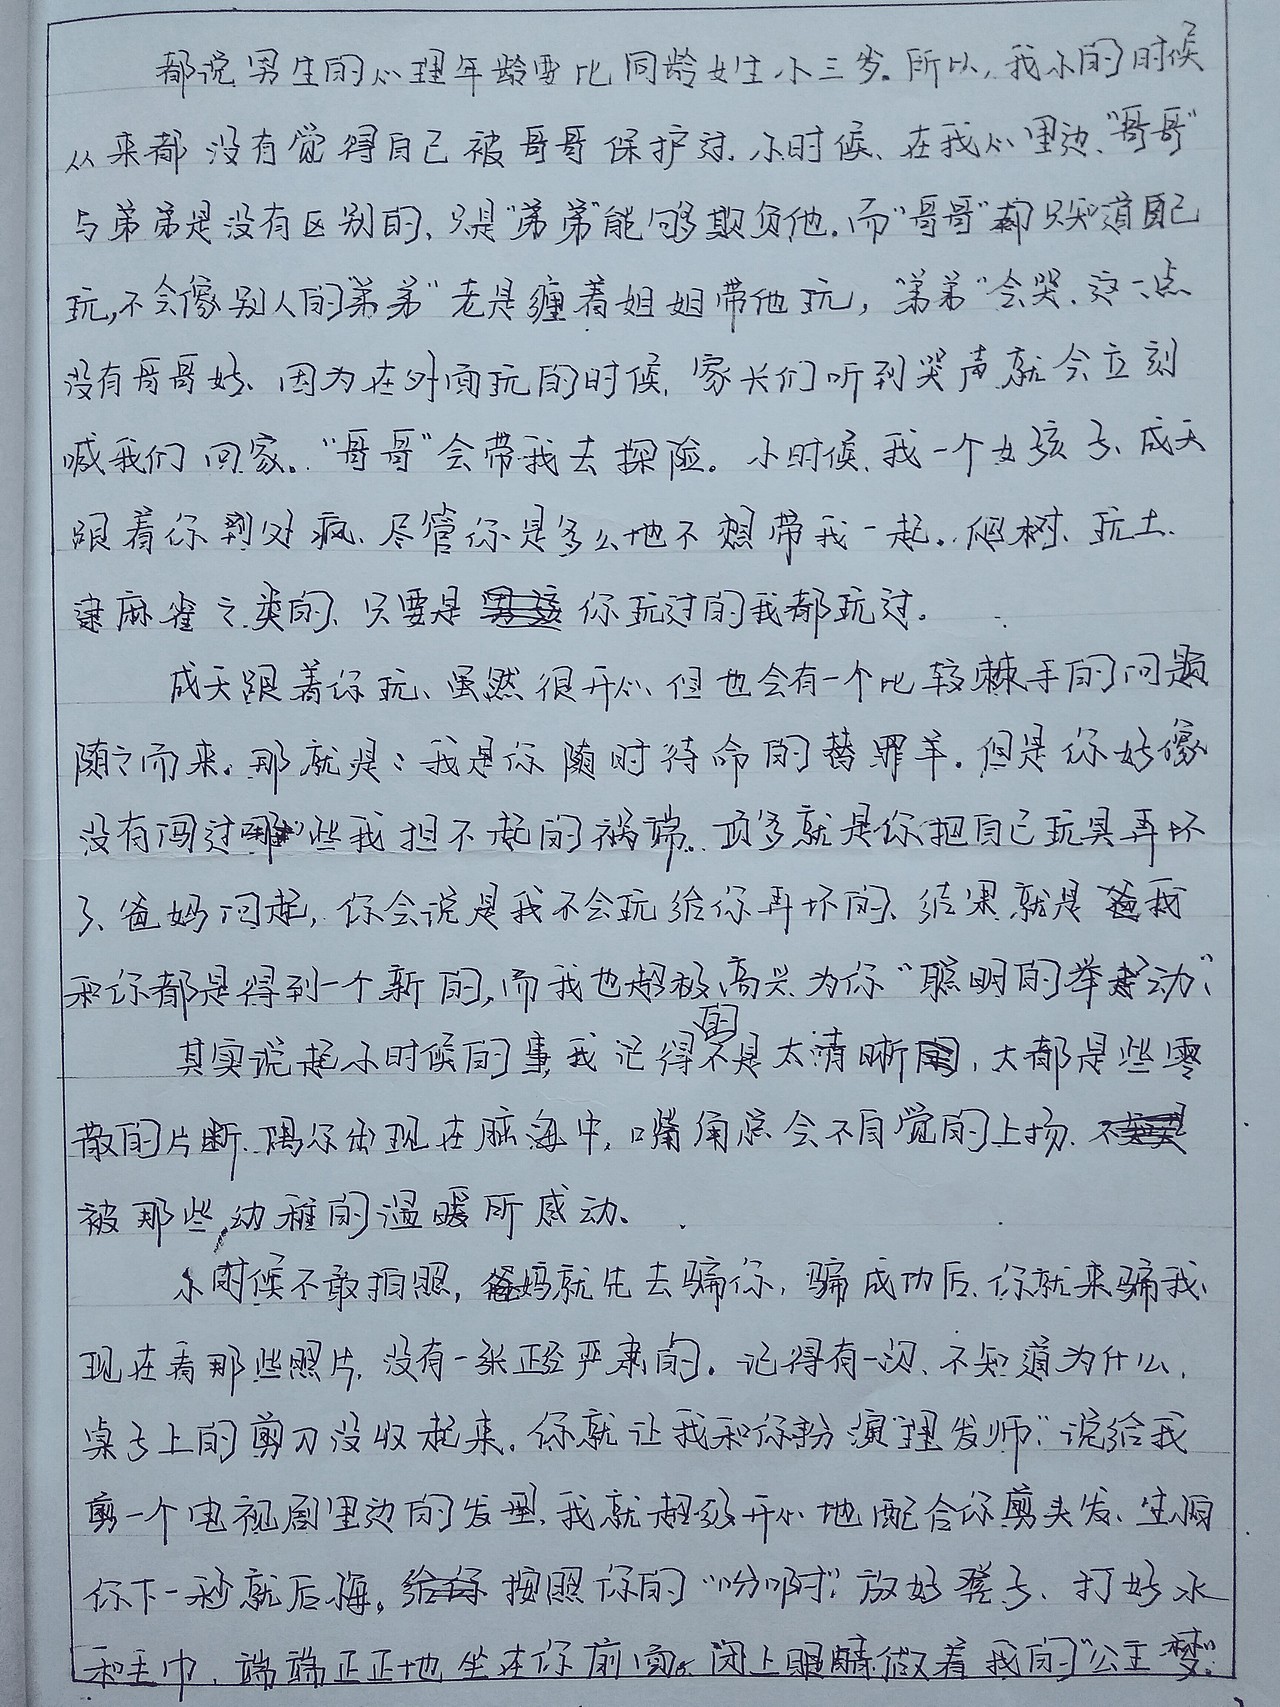 都说男生的心理年龄要比同龄女生小三岁。所以，我小的时候
从来都没有觉得自己被哥哥保护过。小时候、在我心里边、“哥哥”
与弟弟是没有区别的、只是“弟弟”能够欺负他。而“哥哥”都只知道自己
玩，不会像别人的“弟弟”老是缠着姐姐带他玩，“弟弟”会哭、这一点
没有哥哥好、因为在外面玩的时候，家长们听到哭声就会立刻
喊我们回家。“哥哥”会带我去探险。小时候、我一个女孩子、成天
跟着你到处疯、尽管你是多么地不想带我一起。爬树、玩土、
逮麻雀之类的、只要是你玩过的我都玩过。
成天跟着你玩、虽然很开心、但也会有一个比较棘手的问题
随之而来。那就是：我是你随时待命的替罪羊。但是你好像
没有闯过那些我担不起的祸端。顶多就是你把自己玩具弄坏
了、爸妈问起，你会说是我不会玩给你弄坏的、结果就是我
和你都是得到一个新的，而我也超极高兴为你“聪明的举动”、
其实说起小时候的事，我记得的不是太清晰，大都是些零
散的片断、偶尔出现在脑海中，嘴角总会不自觉的上扬、
被那些幼稚的温暖所感动。
小时候不敢拍照，爸妈就先去骗你，骗成功后、你就来骗我、
现在看那些照片，没有一张正经严肃的。记得有一次、不知道为什么，
桌子上的剪刀没收起来。你就让我和你扮演“理发师”：说给我
剪一个电视剧里边的发型、我就超级开心地配合你剪头发、生怕
你下一秒就后悔。按照你的“吩咐”：放好凳子、打好水
和毛巾，端端正正地坐在你前面。闭上眼睛做着我的“公主梦”。